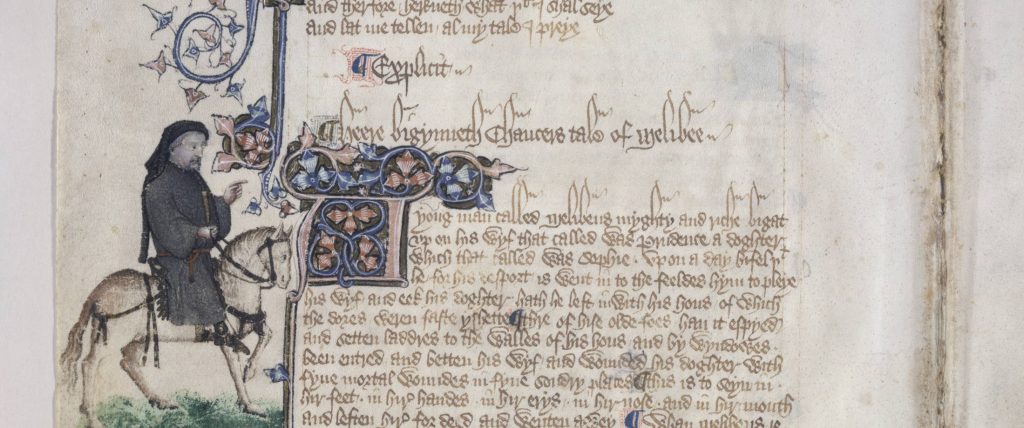 and therfore herkneth what yt I shal seye
and lat me tellen al my tale I preye
¶ Explicit
¶ Heere bigynneth Chaucers tale of Melibee
A yong man called Melibeus myghty and riche bigat
vp on his wyf that called was Prudence a doghter
which that called was Sophie . vpon a day bifel yt
he for his desport is went in to the feeldes hym to pleye
his wyf and eek his doghter hath he left inwith his hous of which
the dores weren faste yshette ¶ thre of hise olde foes han it espyed
and setten laddres to the walles of his hous and by wyndowes
been entred and betten his wyf and wounded his doghter with
fyue mortal woundes in fyue sondry places ¶ this is to seyn in
hir feet . in hir handes . in hir erys . in hir nose . and in hir mouth
and leften hir for deed and wenten awey ¶ Whan Melibeus is